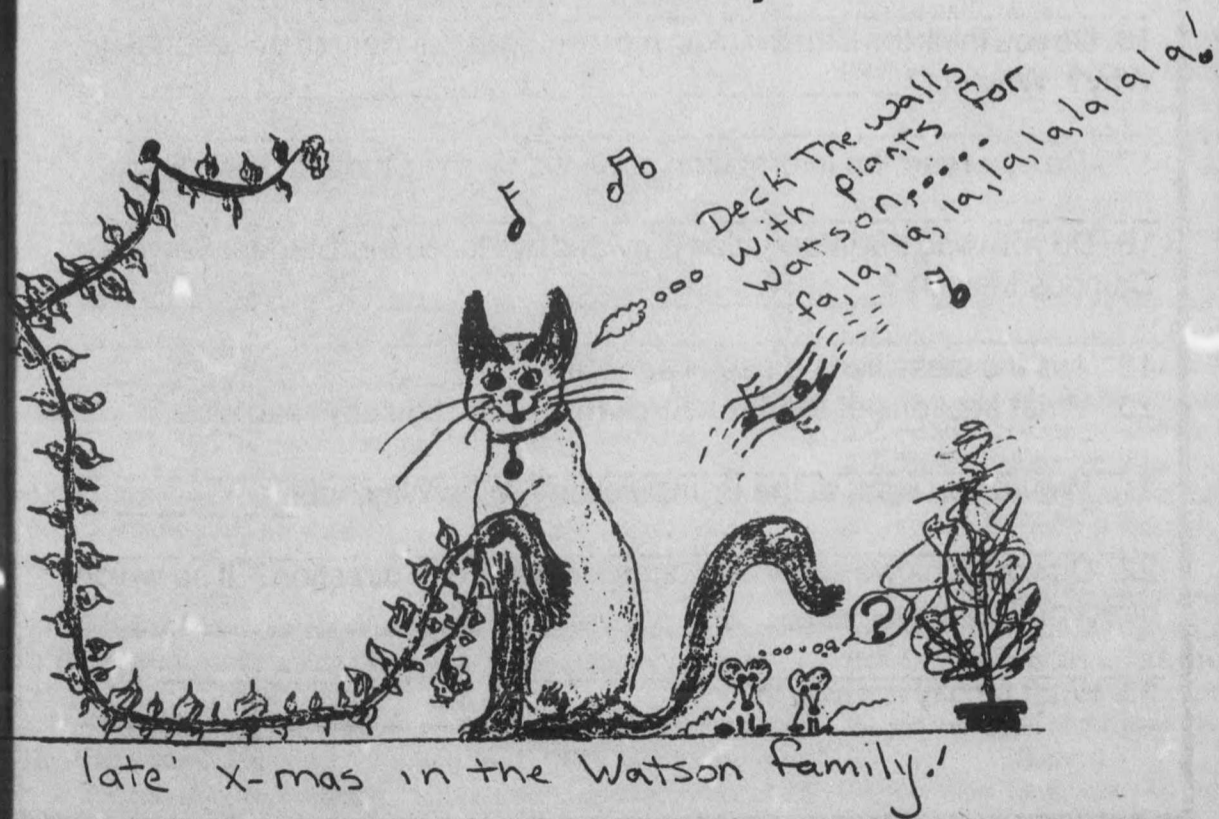 Deck The Walls
With plants for
Watson.....
fa, la, la, la, la, la, lalalala!
?
'late' x-mas in the Watson family!